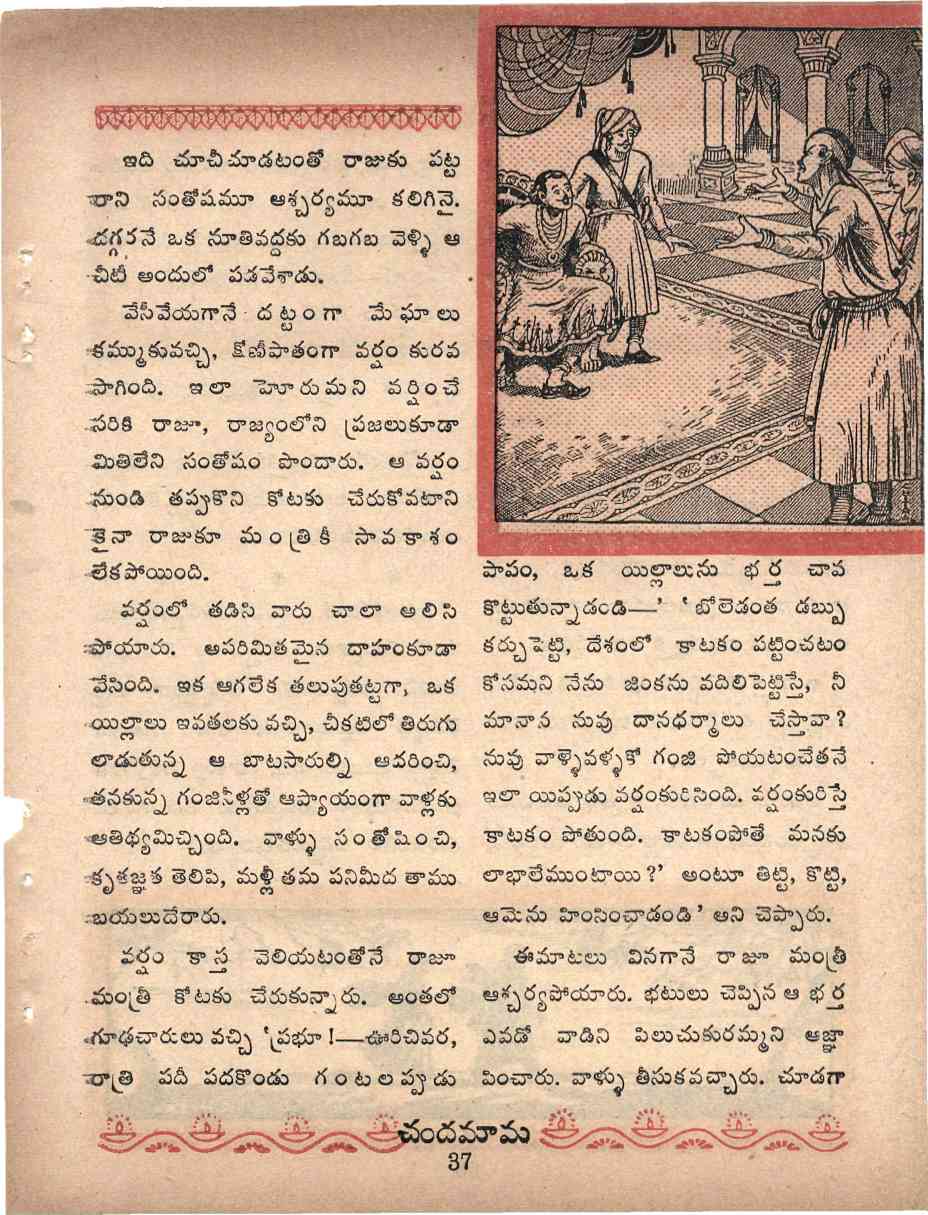 ఇది చూచీచూడటంతో రాజుకు పట్ట
రాని సంతోషమూ ఆశ్చర్యమూ కలిగినై.
దగ్గరనే ఒక నూతివద్దకు గబగబ వెళ్ళి ఆ
చీటీ అందులో పడవేశాడు.
వేసీవేయగానే దట్టంగా మేఘాలు
కమ్ముకువచ్చి, క్షోణీపాతంగా వర్షం కురవ
సాగింది. ఇలా హోరుమని వర్షించే
సరికి రాజూ, రాజ్యంలోని ప్రజలుకూడా
మితిలేని సంతోషం పొందారు. ఆ వర్షం
నుండి తప్పుకొని కోటకు చేరుకోవటాని
కైనా రాజుకూ మంత్రికీ సావకాశం
లేకపోయింది.
వర్షంలో తడిసి వారు చాలా అలిసి
పోయారు. అపరిమితమైన దాహంకూడా
వేసింది. ఇక ఆగలేక తలుపుతట్టగా, ఒక
యిల్లాలు ఇవతలకు వచ్చి, చీకటిలో తిరుగు
లాడుతున్న ఆ బాటసారుల్ని ఆదరించి,
తనకున్న గంజినీళ్లతో ఆప్యాయంగా వాళ్లకు
ఆతిథ్యమిచ్చింది. వాళ్ళు సంతోషించి,
కృతజ్ఞత తెలిపి, మళ్లీ తమ పనిమీద తాము
బయలుదేరారు.
వర్షం కాస్త వెలియటంతోనే రాజూ
మంత్రీ కోటకు చేరుకున్నారు. అంతలో
గూఢచారులు వచ్చి 'ప్రభూ!—ఊరిచివర,
రాత్రి పదీ పదకొండు గంటలప్పుడు
పాపం, ఒక యిల్లాలును భర్త చావ
కొట్టుతున్నాడండి—' 'బోలెడంత డబ్బు
కర్చుపెట్టి, దేశంలో కాటకం పట్టించటం
కోసమని నేను జింకను వదిలిపెట్టిస్తే, నీ
మానాన నువు దానధర్మాలు చేస్తావా?
నువు వాళ్ళెవళ్ళకో గంజి పోయటంచేతనే
ఇలా యిప్పుడు వర్షంకురిసింది. వర్షంకురిస్తే
కాటకం పోతుంది. కాటకంపోతే మనకు
లాభాలేముంటాయి?' అంటూ తిట్టి, కొట్టి,
ఆమెను హింసించాడండి' అని చెప్పారు.
ఈమాటలు వినగానే రాజూ మంత్రీ
ఆశ్చర్యపోయారు. భటులు చెప్పిన ఆ భర్త
ఎవడో వాడిని పిలుచుకురమ్మని ఆజ్ఞా
పించారు. వాళ్ళు తీసుకవచ్చారు. చూడగా
చందమామ
37